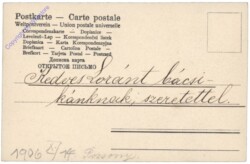 Postkarte — Carte postale
Weltpostverein — Union postale universelle
Correspondenzkarte — Dopisnice
Levelező-Lap — Korespondenční lístek
Dopisnica — Karta Korespondencyjna
Briefkaart — Cartolina Postale
Brefkort — Tarjeta Postal — Dopisnica
ОТКРЫТОЕ ПИСЬМО
Kedves Loránt bácsi-
kánknak, szeretettel.
1906